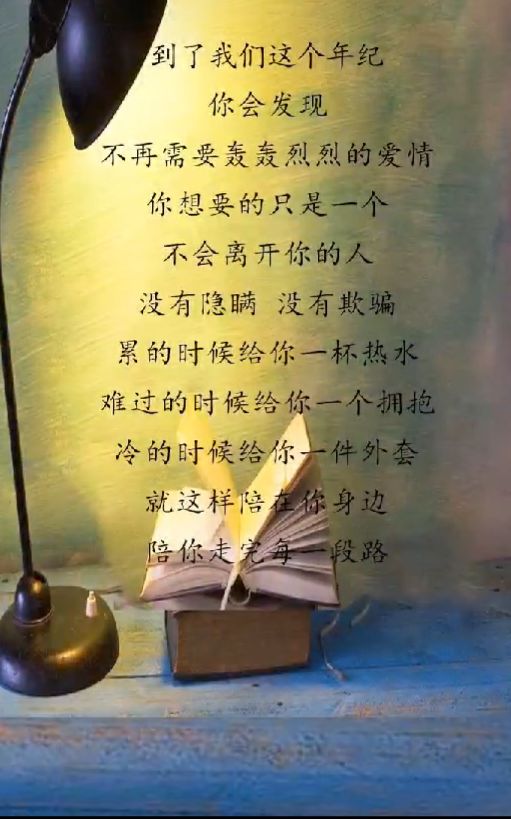 到了我们这个年纪
你会发现
不再需要轰轰烈烈的爱情
你想要的只是一个
不会离开你的人
没有隐瞒 没有欺骗
累的时候给你一杯热水
难过的时候给你一个拥抱
冷的时候给你一件外套
就这样陪在你身边
陪你走完每一段路